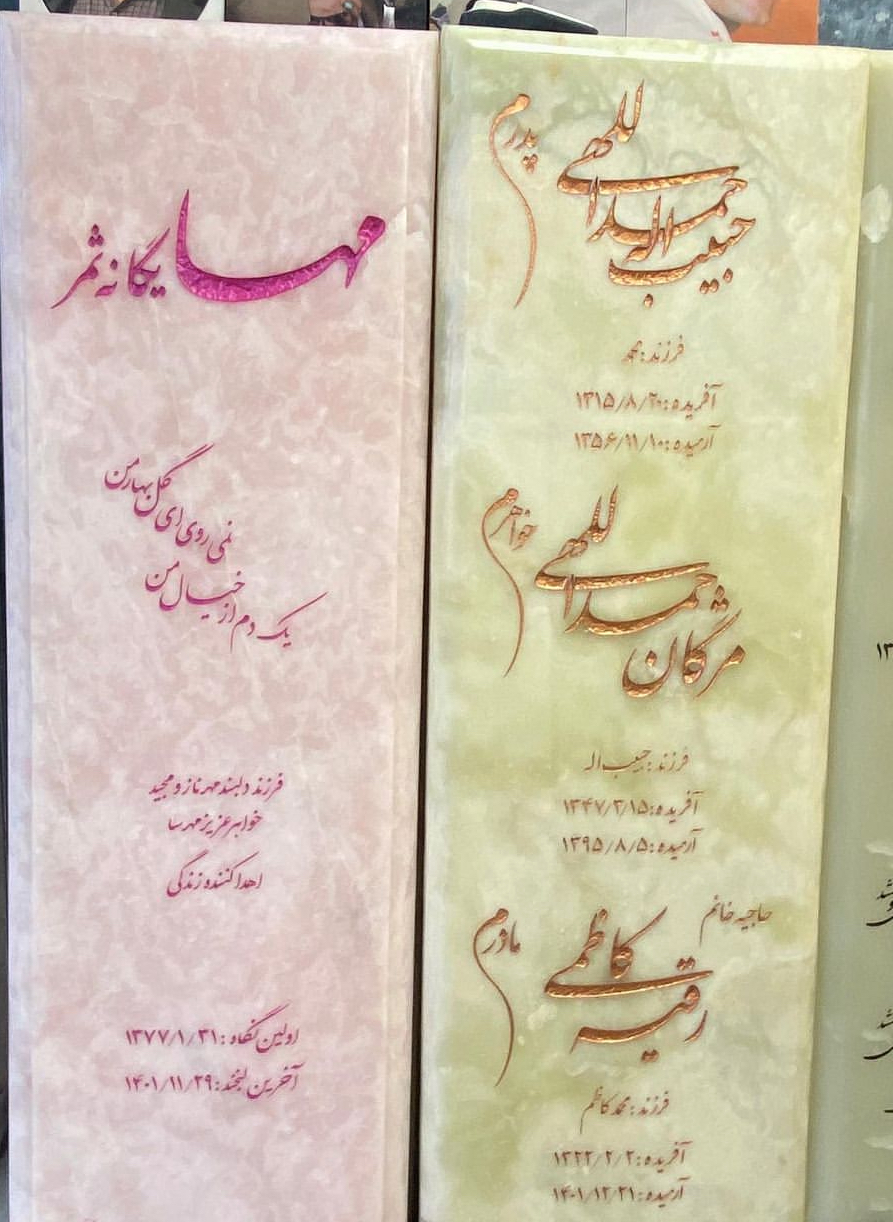 مهسا یگانه ثمر
نمی روی ای گل بهار من
یک دم از خیال من
فرزند دلبند مهرناز و مجید
خواهر عزیز مهرسا
اهدا کننده زندگی
اولین نگاه: ۱۳۷۷/۱/۳۱
آخرین لبخند: ۱۴۰۱/۱۱/۲۹
پدرم
حبیب اله حمداللهی
فرزند: محمد
آفریده: ۱۳۱۵/۸/۲۰
آرمیده: ۱۳۵۶/۱۱/۱۰
خواهرم
مژگان حمداللهی
فرزند: حبیب اله
آفریده: ۱۳۴۷/۳/۱۵
آرمیده: ۱۳۹۵/۸/۵
مادرم
حاجیه خانم
رقیه کاظمی
فرزند: محمدکاظم
آفریده: ۱۳۲۲/۲/۲
آرمیده: ۱۴۰۱/۱۲/۲۱